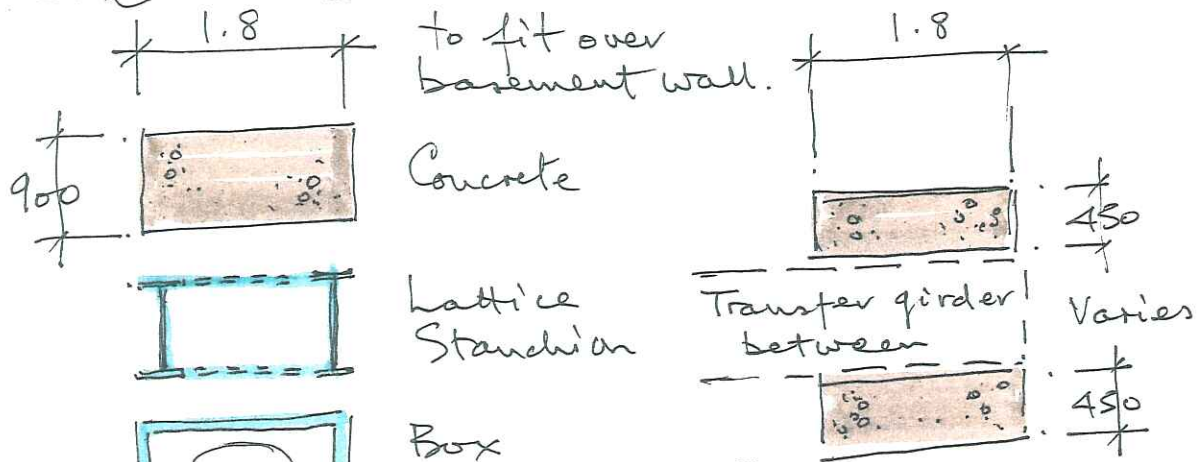 1.8
to fit over
basement wall.
900
Concrete
Lattice
Stanchion
Box
1.8
450
Transfer girder
between
Varies
450